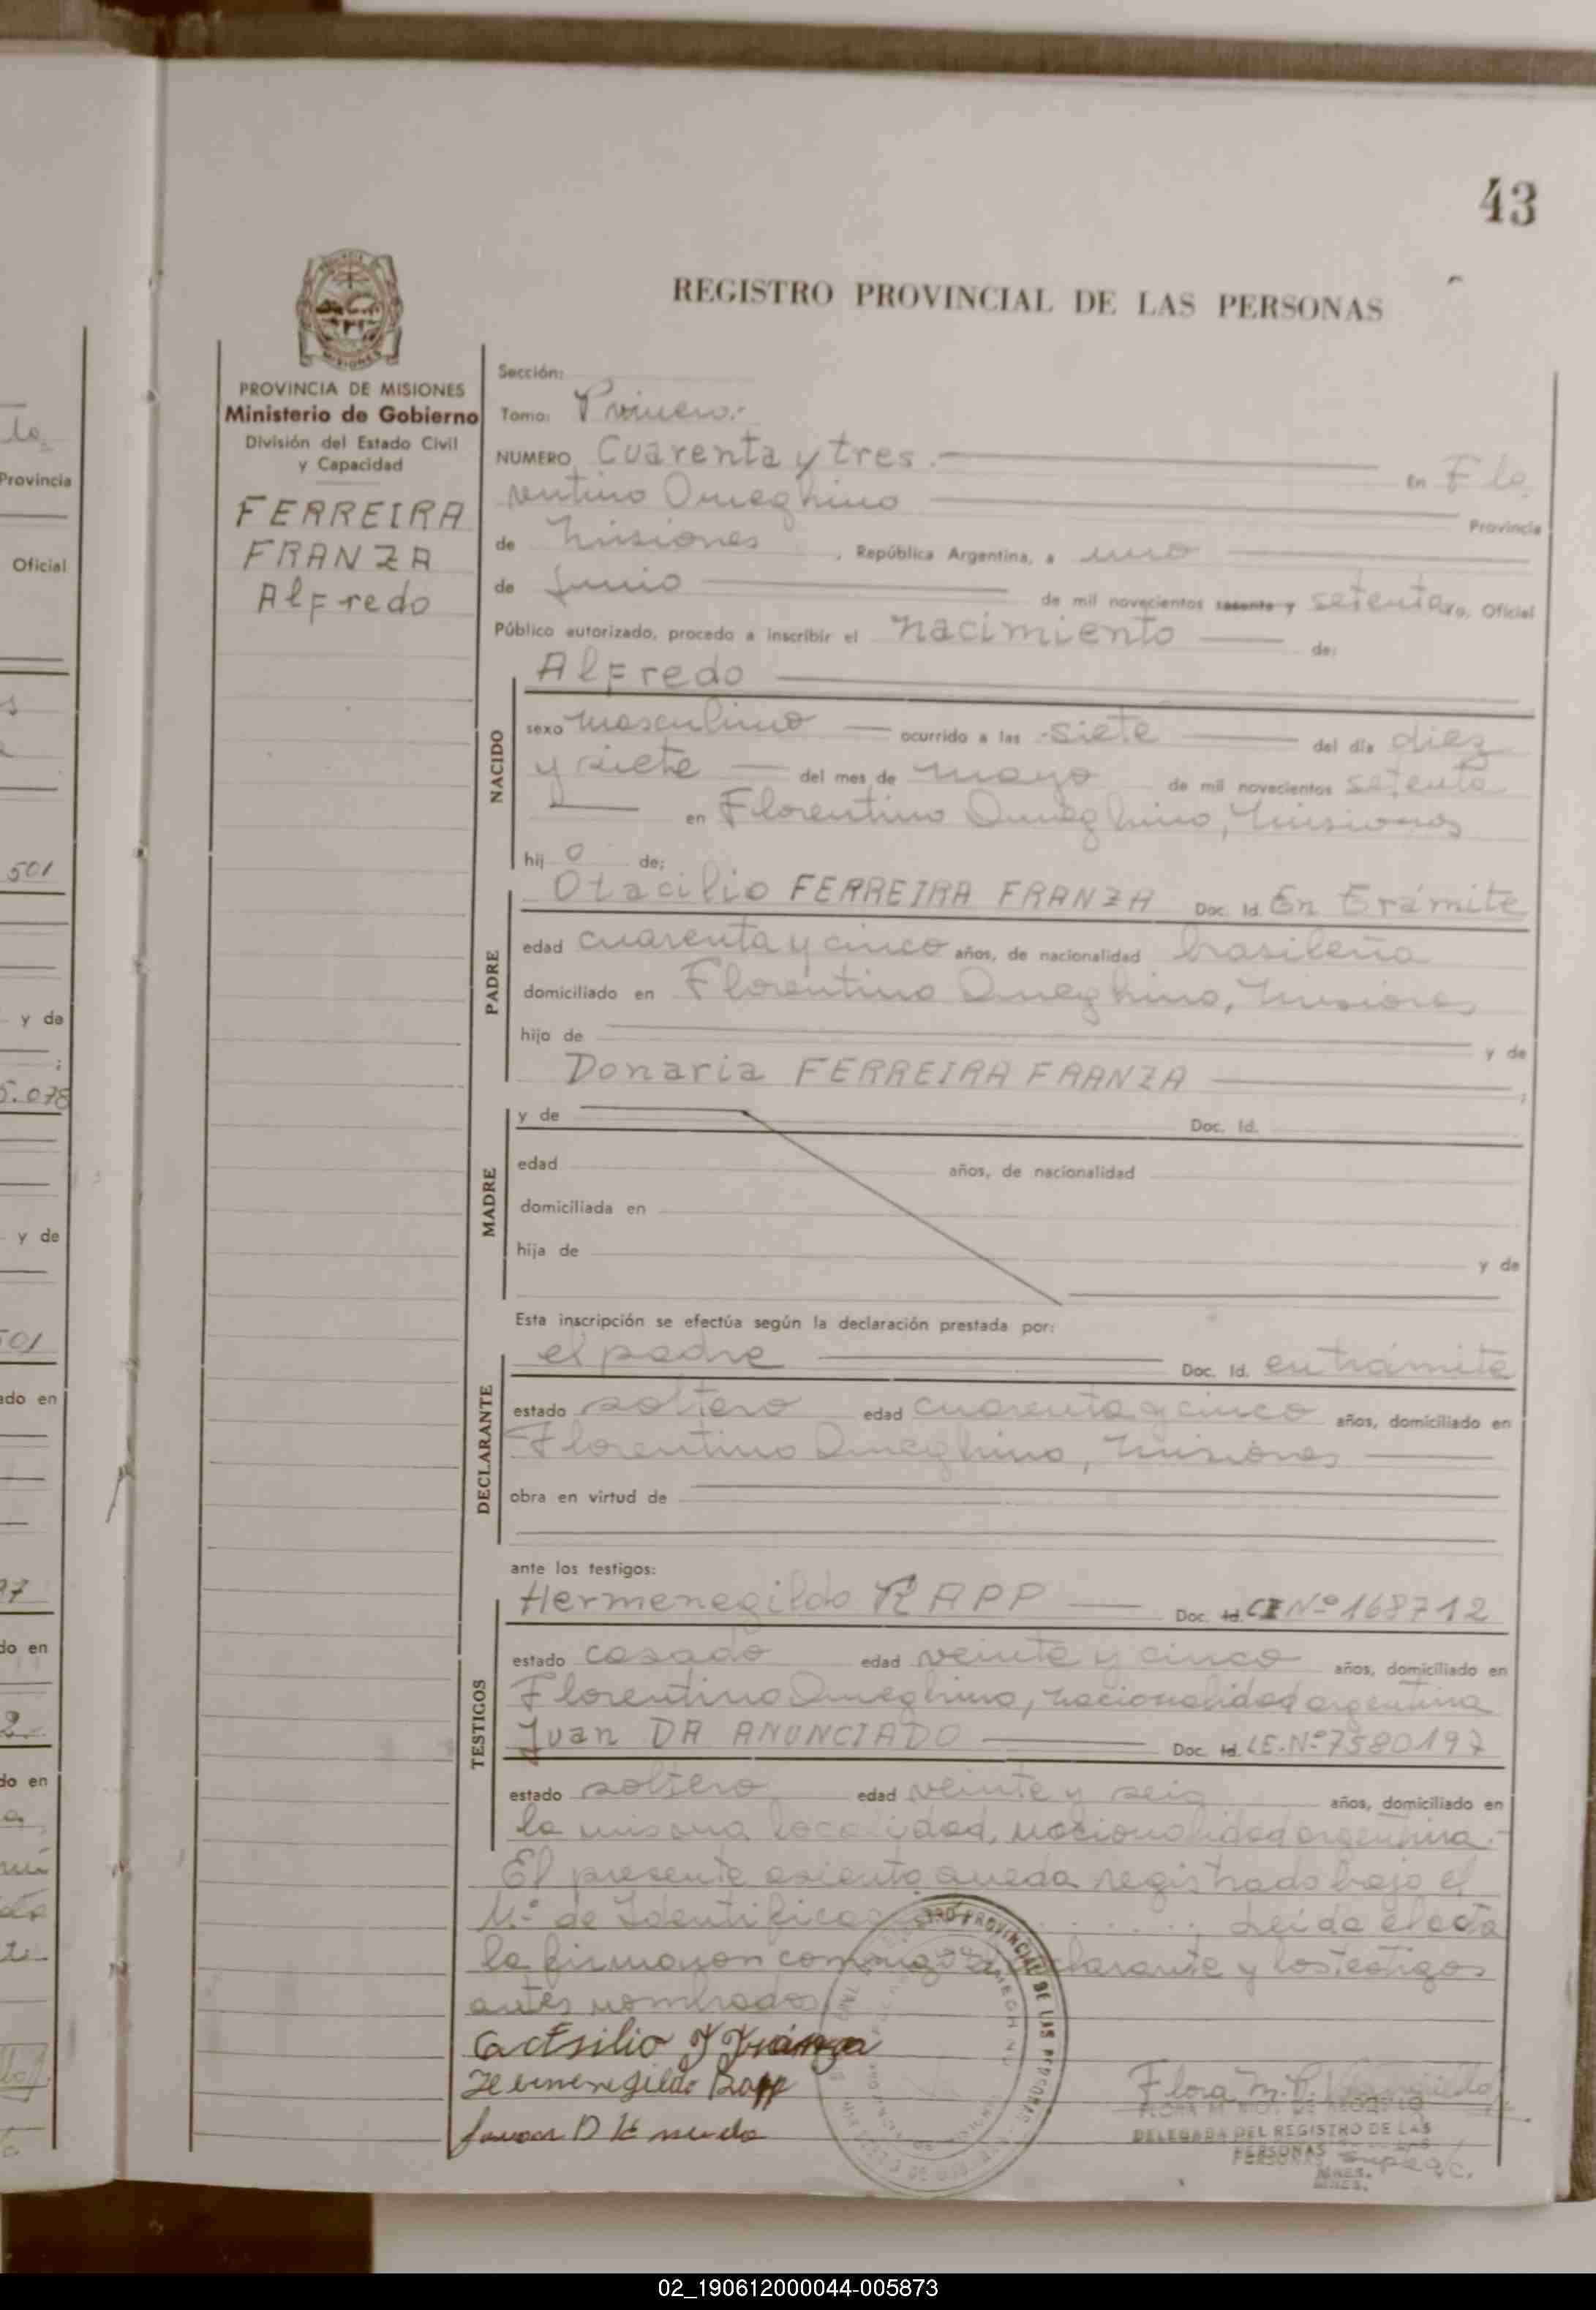 43
REGISTRO PROVINCIAL DE LAS PERSONAS
PROVINCIA DE MISIONES
Ministerio de Gobierno
División del Estado Civil
y Capacidad
FERREIRA
FRANZA
Alfredo
Sección:
Tomo: Primero.-
NUMERO Cuarenta y tres.- En Flo
rentino Ameghino Provincia
de Misiones, República Argentina, a uno
de Junio de mil novecientos sesenta y setenta yo, Oficial
Público autorizado, procedo a inscribir el nacimiento de:
Alfredo
NACIDO
sexo masculino ocurrido a las siete del día diez
y siete del mes de mayo de mil novecientos setenta
en Florentino Ameghino, Misiones
hij o de;
PADRE
Otacilio FERREIRA FRANZA Doc. Id. En Trámite
edad cuarenta y cinco años, de nacionalidad brasileña
domiciliado en Florentino Ameghino, Misiones
hijo de y de
Donaria FERREIRA FRANZA ;
MADRE
y de Doc. Id.
edad años, de nacionalidad
domiciliada en
hija de y de
Esta inscripción se efectúa según la declaración prestada por:
DECLARANTE
el padre Doc. Id. en trámite
estado soltero edad cuarenta y cinco años, domiciliado en
Florentino Ameghino, Misiones
obra en virtud de
ante los testigos:
TESTIGOS
Hermenegildo RAPP Doc. Id. CI Nº 168712
estado casado edad veinte y cinco años, domiciliado en
Florentino Ameghino, nacionalidad argentina
Juan DA ANUNCIADO Doc. Id. LE. Nº 7580197
estado soltero edad veinte y seis años, domiciliado en
la misma localidad, nacionalidad argentina.-
El presente asiento queda registrado bajo el
Nº de Leída el acta
la firmaron conmigo el declarante y los testigos
antes nombrados
Hermenegildo Rapp
Flora M.
DELEGADA DEL REGISTRO DE LAS
PERSONAS
MNES.
PROVINCIAL DE LAS PERSONAS
y de
Provincia
Oficial
501
5.078
y de
501
ado en
do en
do en
02_190612000044-005873